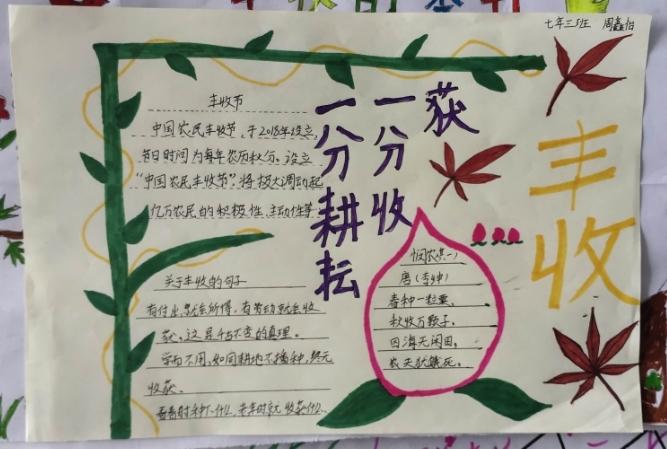 七年三班 周鑫怡
丰收
一分耕耘
一分收
获
丰收节
中国农民丰收节,于2018年设立,
节日时间为每年农历秋分。设立
“中国农民丰收节”,将极大调动起
亿万农民的积极性、主动性等
关于丰收的句子
有付出,就会所得,有劳动就会收
获,这是千古不变的真理。
学而不用,如同耕地不播种,终无
收获。
青春时种下什么,老年时就收获什么.
悯农(其一)
唐(李绅)
春种一粒粟,
秋收万颗子。
四海无闲田,
农夫犹饿死。